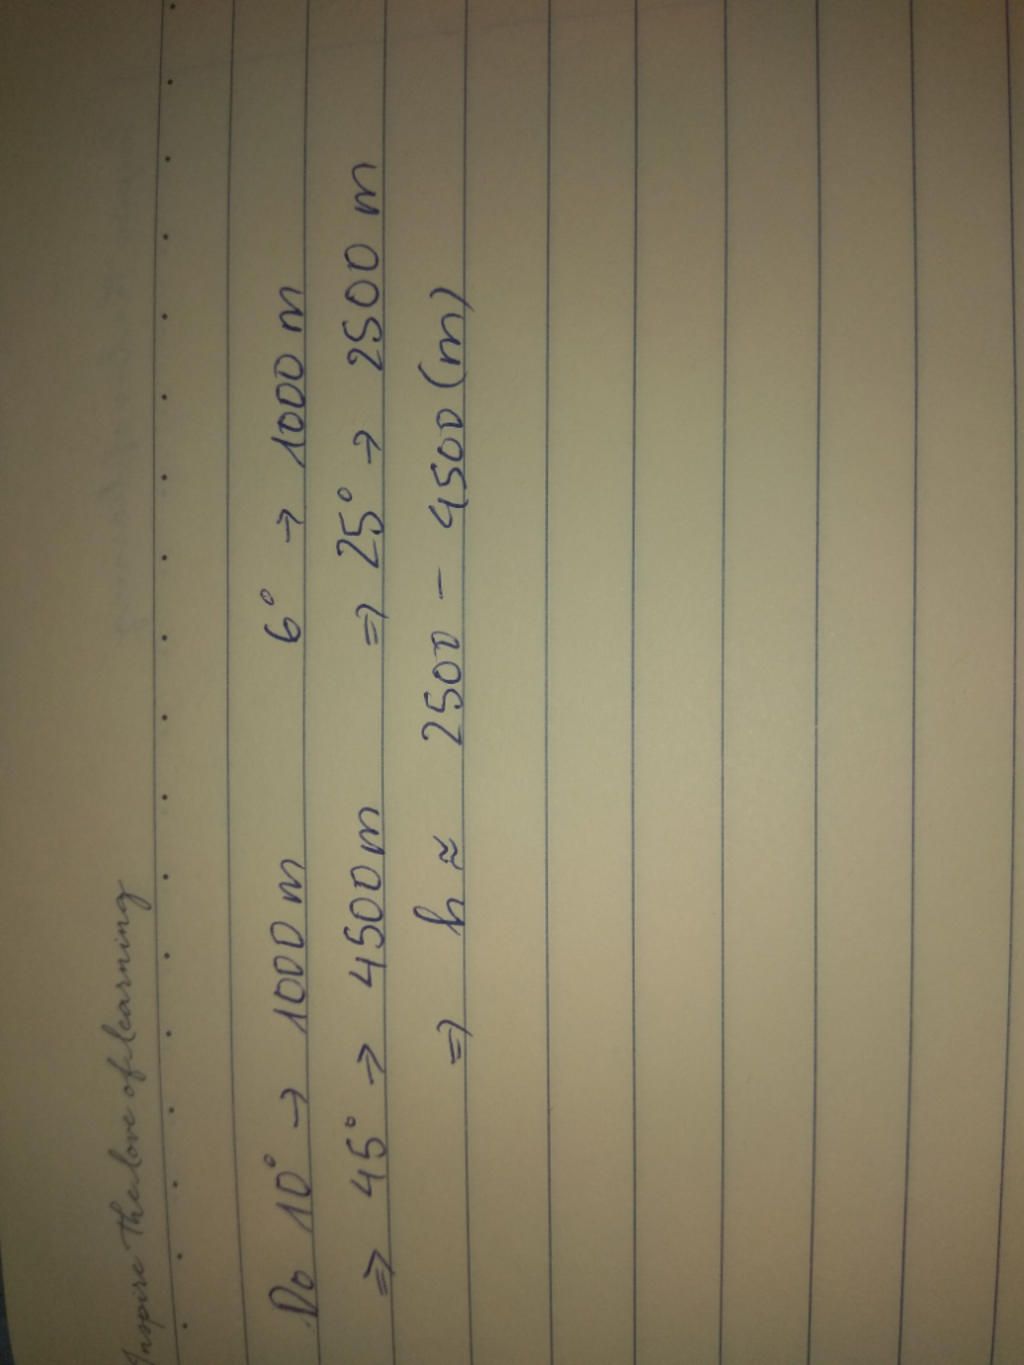 Inspire the love of learning
Do 10° → 1000 m 6° → 1000 m
=> 45° → 4500 m => 25° → 2500 m
=> h ≈ 2500 - 4500 (m)